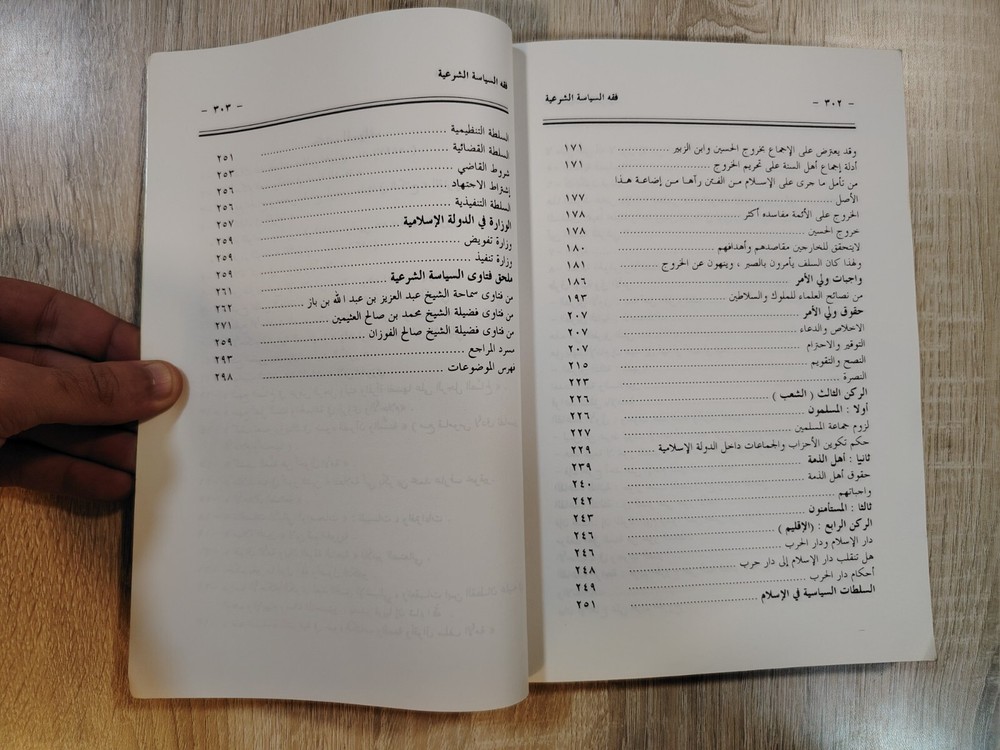 - ٣٠٢ - فقه السياسة الشرعية
وقد يعترض على الإجماع بخروج الحسين وابن الزبير ........ ١٧١
أدلة إجماع أهل السنة على تحريم الخروج ........ ١٧١
من تأمل ما جرى على الإسلام من الفتن رآها من إضاعة هذا
الأصل ........ ١٧٧
الخروج على الأئمة مفاسده أكثر ........ ١٧٨
خروج الحسين ........ ١٧٨
لايتحقق للخارجين مقاصدهم وأهدافهم ........ ١٨٠
ولهذا كان السلف يأمرون بالصبر ، وينهون عن الخروج ........ ١٨١
واجبات ولي الأمر ........ ١٨٦
من نصائح العلماء للملوك والسلاطين ........ ١٩٣
حقوق ولي الأمر ........ ٢٠٧
الاخلاص والدعاء ........ ٢٠٧
التوقير والاحترام ........ ٢٠٧
النصح والتقويم ........ ٢١٥
النصرة ........ ٢٢٣
الركن الثالث ( الشعب ) ........ ٢٢٦
أولا : المسلمون ........ ٢٢٦
لزوم جماعة المسلمين ........ ٢٢٧
حكم تكوين الأحزاب والجماعات داخل الدولة الإسلامية ........ ٢٢٩
ثانيا : أهل الذمة ........ ٢٣٩
حقوق أهل الذمة ........ ٢٤٠
واجباتهم ........ ٢٤٢
ثالثا : المستأمنون ........ ٢٤٣
الركن الرابع : (الإقليم ) ........ ٢٤٦
دار الإسلام ودار الحرب ........ ٢٤٦
هل تنقلب دار الإسلام إلى دار حرب ........ ٢٤٨
أحكام دار الحرب ........ ٢٤٩
السلطات السياسية في الإسلام ........ ٢٥١
فقه السياسة الشرعية - ٣٠٣ -
السلطة التنظيمية ........ ٢٥١
السلطة القضائية ........ ٢٥٣
شروط القاضي ........ ٢٥٦
إشتراط الاجتهاد ........ ٢٥٦
السلطة التنفيذية ........ ٢٥٧
الوزارة في الدولة الإسلامية ........ ٢٥٩
وزارة تفويض ........ ٢٥٩
وزارة تنفيذ ........ ٢٥٩
ملحق فتاوى السياسة الشرعية ........ ٢٦١
من فتاوى سماحة الشيخ عبد العزيز بن عبد الله بن باز ........ ٢٦٢
من فتاوى فضيلة الشيخ محمد بن صالح العثيمين ........ ٢٧١
من فتاوى فضيلة الشيخ صالح الفوزان ........ ٢٥٩
مسرد المراجع ........ ٢٩٣
فهرس الموضوعات ........ ٢٩٨